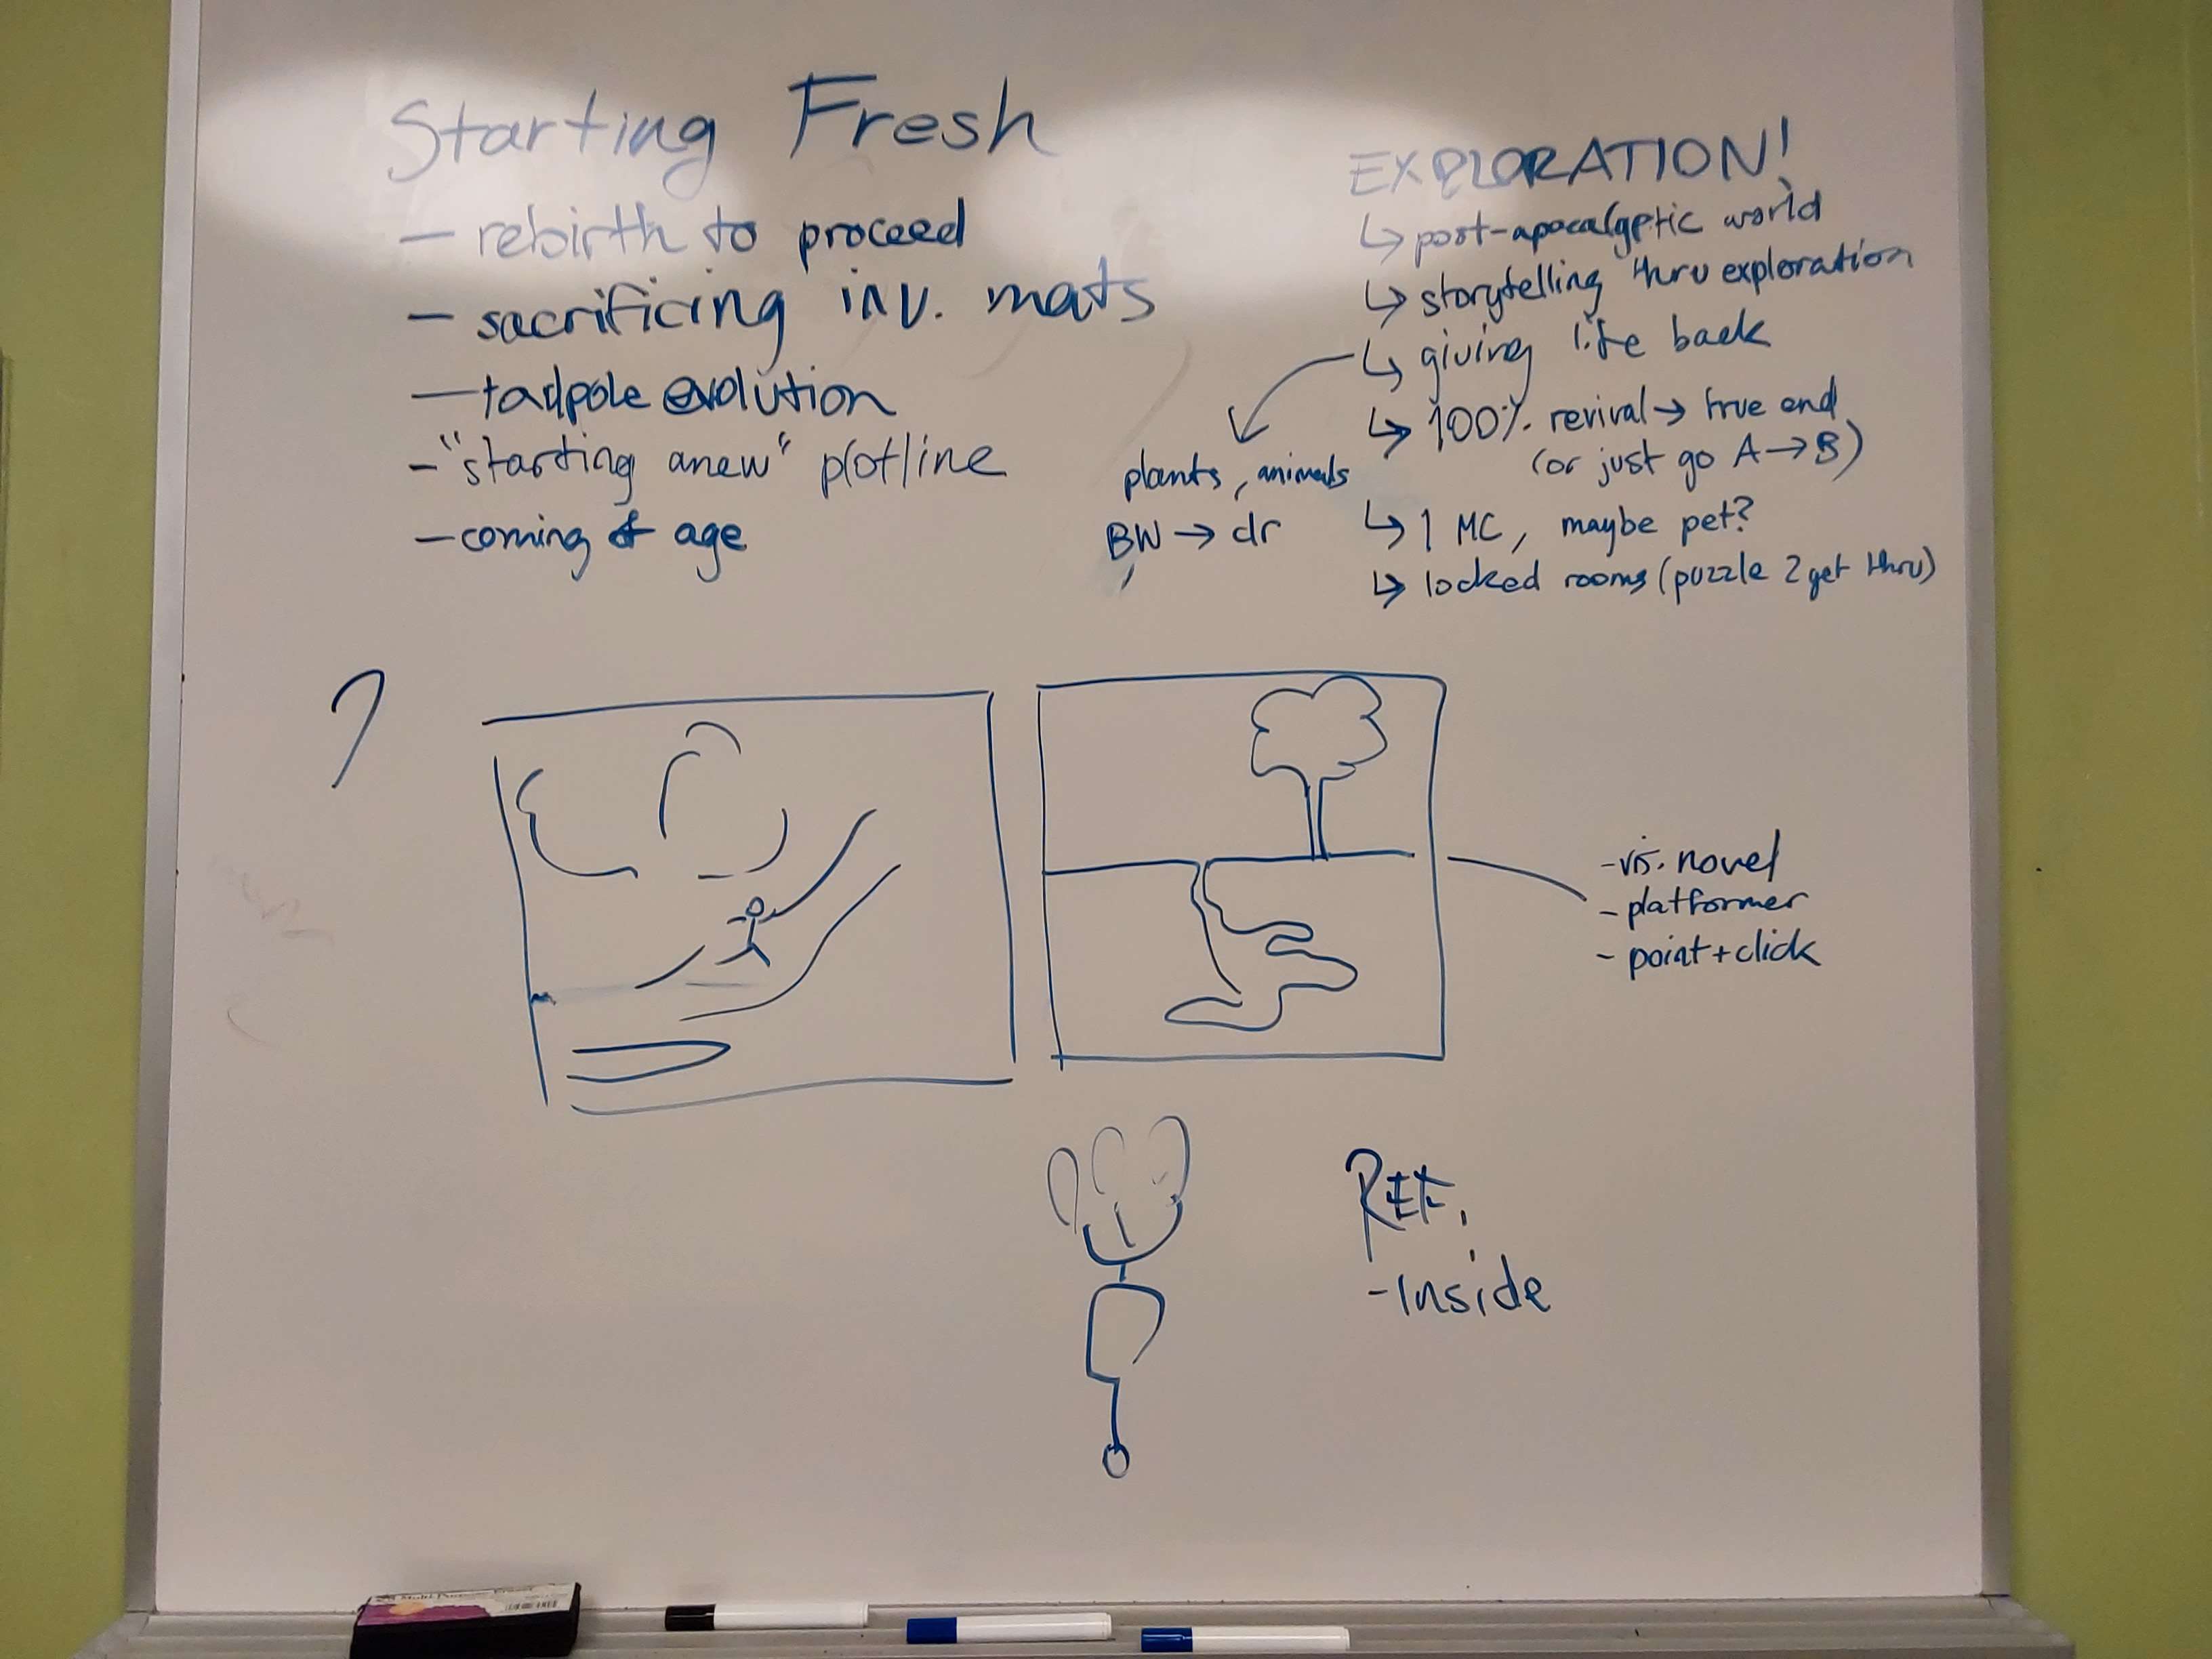 Starting Fresh
- rebirth to proceed
- sacrificing inv. mats
- tadpole evolution
- "starting anew" plotline
- coming of age
EXPLORATION!
↳ post-apocalyptic world
↳ storytelling thru exploration
↳ giving life back
plants, animals
BW → clr
↳ 100% revival → true end
(or just go A → B)
↳ 1 MC, maybe pet?
↳ locked rooms (puzzle 2 get thru)
- vis. novel
- platformer
- point + click
REF.
- Inside